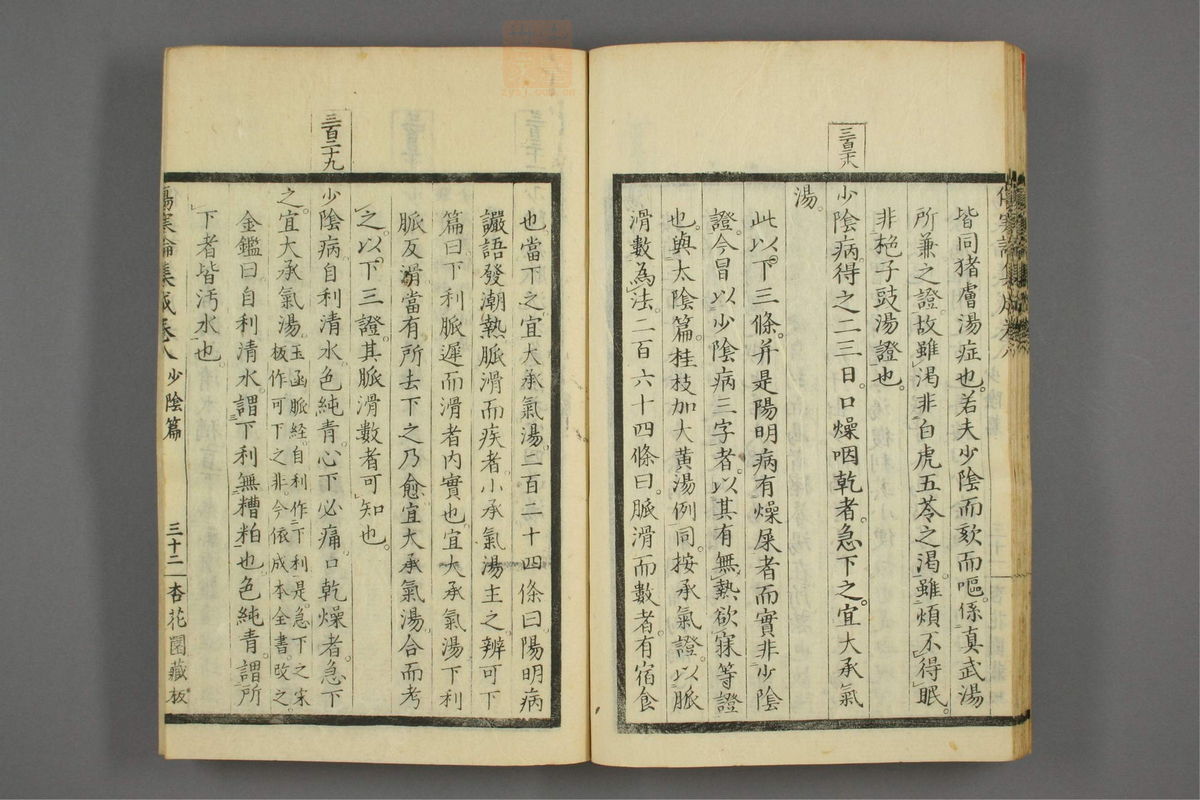 皆同猪膚湯症也。若夫少陰而欬而嘔。係真武湯
所兼之證。故雖渴非白虎五苓之渴。雖煩不得眠。
非梔子豉湯證也。
三百二十八
少陰病。得之二三日。口燥咽乾者。急下之。宜大承氣
湯。
此以下三條。并是陽明病有燥屎者而實非少陰
證。今冒以少陰病三字者。以其有無熱欲寐等證
也。與太陰篇。桂枝加大黃湯例同。按承氣證。以脈
滑數為法。二百六十四條曰。脈滑而數者。有宿食
也。當下之。宜大承氣湯。二百二十四條曰。陽明病
讝語發潮熱。脈滑而疾者。小承氣湯主之。辨可下
篇曰。下利脈遲而滑者。內實也。宜大承氣湯。下利
脈反滑。當有所去。下之乃愈。宜大承氣湯。合而考
之。以下三證。其脈滑數者可知也。
三百二十九
少陰病。自利清水。色純青。心下必痛。口乾燥者。急下
之。宜大承氣湯。玉函脈經。自利作下利。是。急下之。宋
板作可下之。非。今依成本全書。改之
金鑑曰。自利清水。謂下利無糟粕也。色純青。謂所
下者皆汚水也。
傷寒論集成卷八 少陰篇 三十二 杏花園藏板